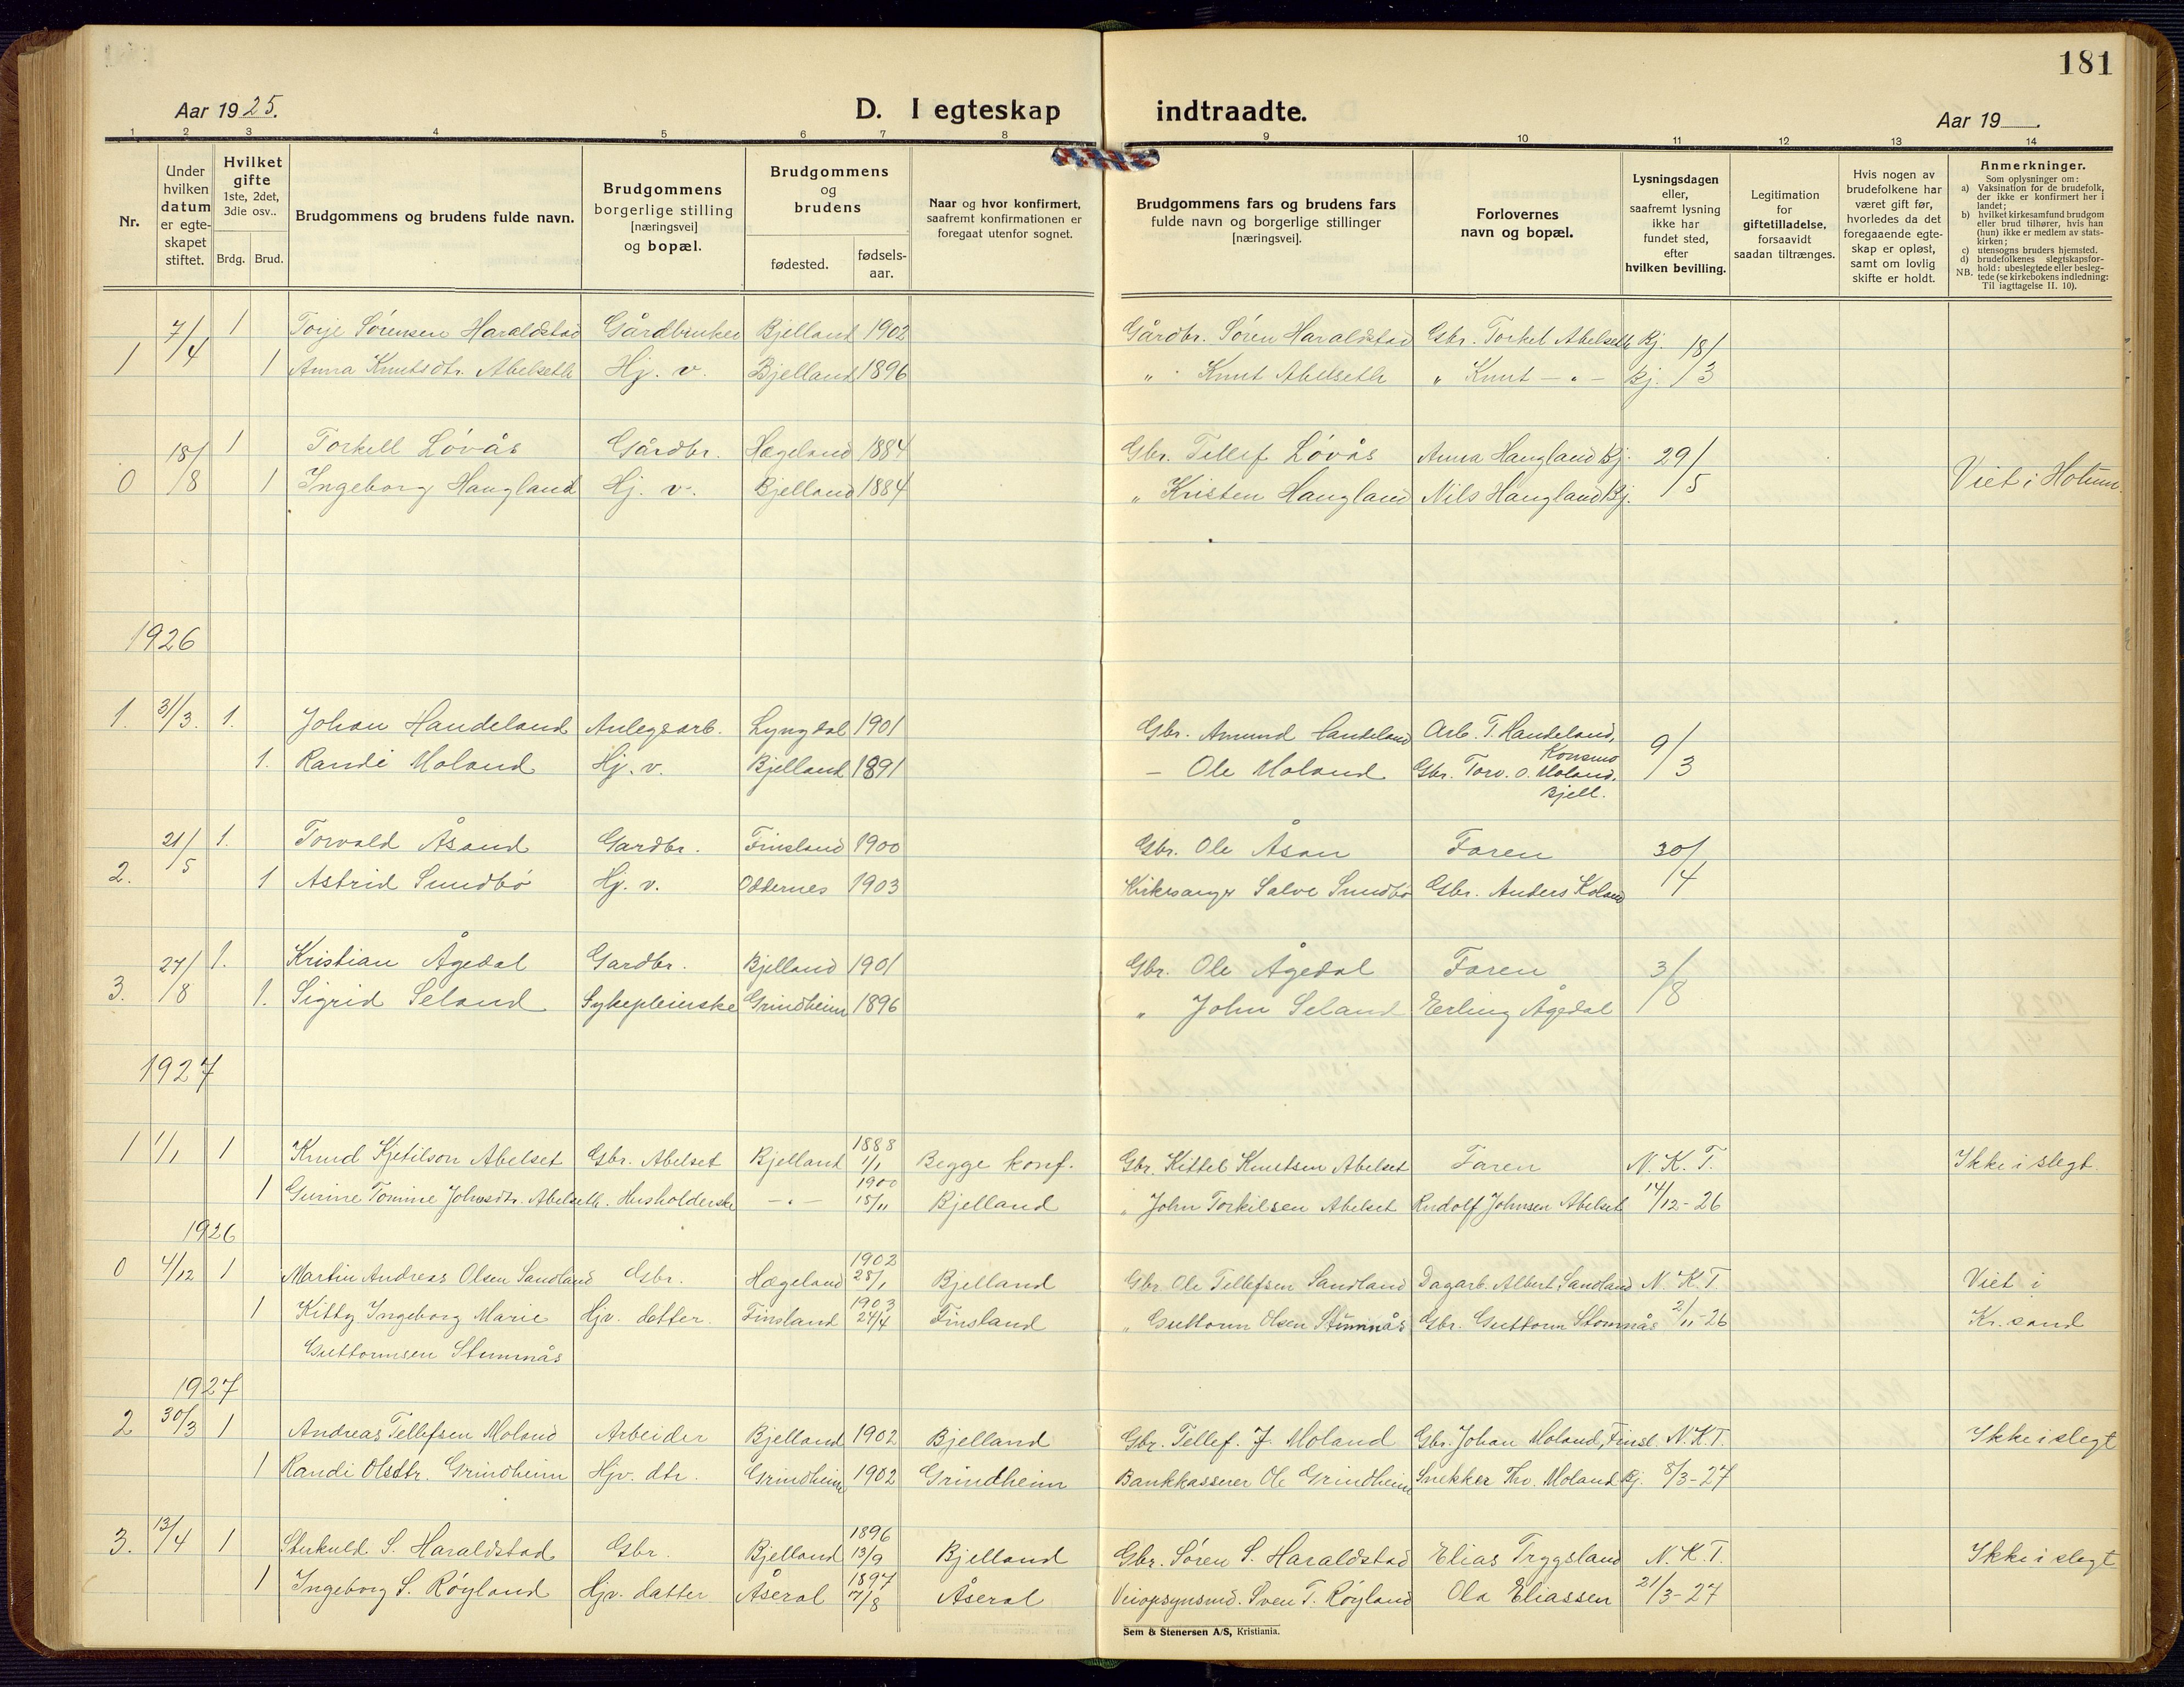 181
Aar 1925.
D. I egteskap indtraadte.
Aar 19
1 2 3 4 5 6 7 8 9 10 11 12 13 14
Nr.
Under hvilken datum er egteskapet stiftet.
Hvilket gifte 1ste, 2det, 3die osv..
Brdg. Brud.
Brudgommens og brudens fulde navn.
Brudgommens borgerlige stilling [næringsvei] og bopæl.
Brudgommens og brudens
fødested.
fødselsaar.
Naar og hvor konfirmert, saafremt konfirmationen er foregaat utenfor sognet.
Brudgommens fars og brudens fars fulde navn og borgerlige stillinger [næringsvei].
Forlovernes navn og bopæl.
Lysningsdagen eller, saafremt lysning ikke har fundet sted, efter hvilken bevilling.
Legitimation for giftetilladelse, forsaavidt saadan tiltrænges.
Hvis nogen av brudefolkene har været gift før, hvorledes da det foregaaende egteskap er opløst, samt om lovlig skifte er holdt.
Anmerkninger.
Som oplysninger om:
a) Vaksination for de brudefolk, der ikke er konfirmert her i landet;
b) hvilket kirkesamfund brudgom eller brud tilhører, hvis han (hun) ikke er medlem av statskirken;
c) utensogns bruders hjemsted.
d) brudefolkenes slegtskapsforhold: ubeslegtede eller beslegtede (se kirkebokens indledning: Til iagttagelse II. 10).
NB.
7/4 1 Torje Sørensen Haraldstad Gårdbruker Bjelland 1902 Gårdbr. Søren Haraldstad Gbr. Torkel Abelseth Bj. 18/3
1 1 Anna Knutsdtr. Abelseth Hj. v. Bjelland 1896 " Knut Abelseth " Knut - " - Bj.
18/8 1 Torkell Løvås Gårdbr. Hægeland 1884 Gbr. Tellef Løvås Anna Haugland Bj. 29/5
0 1 Ingeborg Haugland Hj. v. Bjelland 1884 " Kristen Haugland Nils Haugland Bj. Viet i Holum.
1926
1. 31/3. 1. Johan Handeland Anlegsarb. Lyngdal 1901 Gbr. Amund Handeland Arb. T. Handeland, Konsmo 9/3
1. Randi Moland Hj. v. Bjelland 1891 – Ole Moland Gbr. Torv. O. Moland, Bjell.
21/5 1. Torvald Åsand Gardbr. Finsland 1900 Gbr. Ole Åsan Faren 30/4
2. 1 Astrid Sundbø Hj. v. Oddernes 1903 Kirkesanger Salve Sundbø Gbr. Anders Koland
27/8 1. Kristian Ågedal Gardbr. Bjelland 1901 Gbr. Ole Ågedal Faren 3/8
3. 1. Sigrid Seland Sykepleierske Grindheim 1896 " John Seland Erling Ågedal
1927
1 1/1 1 Knud Kjetilson Abelset Gbr. Abelset Bjelland 1888 1/1 Begge konf. Gbr. Kittel Knutsen Abelset Faren N. K. T. Ikke i slegt.
1 Gurine Tomine Johnsdtr. Abelseth. Husholderske - " - 1900 15/11 Bjelland " John Torkilsen Abelset Rudolf Johnsen Abelset 14/12-26
1926
0 4/12 1 Martin Andreas Olsen Sandland Gbr. Hægeland 1902 25/1 Bjelland Gbr. Ole Tellefsen Sandland Dagarb. Albert Sandland N. K. T. Viet i
1 Kitty Ingeborg Marie Hjv. datter. Finsland 1903 24/4 Finsland " Guttorm Olsen Stumnås Gbr. Guttorm Stomnås 2/11-26 Kr. sand
Guttormsen Stumnås
1927
2 30/3 1 Andreas Tellefsen Moland Arbeider Bjelland 1902 Bjelland Gbr. Tellef. J. Moland Gbr. Johan Moland, Finsl. N. K. T. Ikke i slegt
1 Randi Olsdtr. Grindheim Hjv. dtr. Grindheim 1902 Grindheim Bankkasserer Ole Grindheim Snekker Thv. Moland Bj. 8/3-27
3. 13/4 1 Sterkuld S. Haraldstad Gbr. Bjelland 1896 13/9 Bjelland Gbr. Søren S. Haraldstad Elias Tryggsland N. K. T. Ikke i slegt
1 Ingeborg S. Røyland Hjv. datter Åseral 1897 7/8 Åseral Veiopsynsmd. Sven T. Røyland Ola Eliassen 21/3-27
Sem & Stenersen A/S, Kristiania.